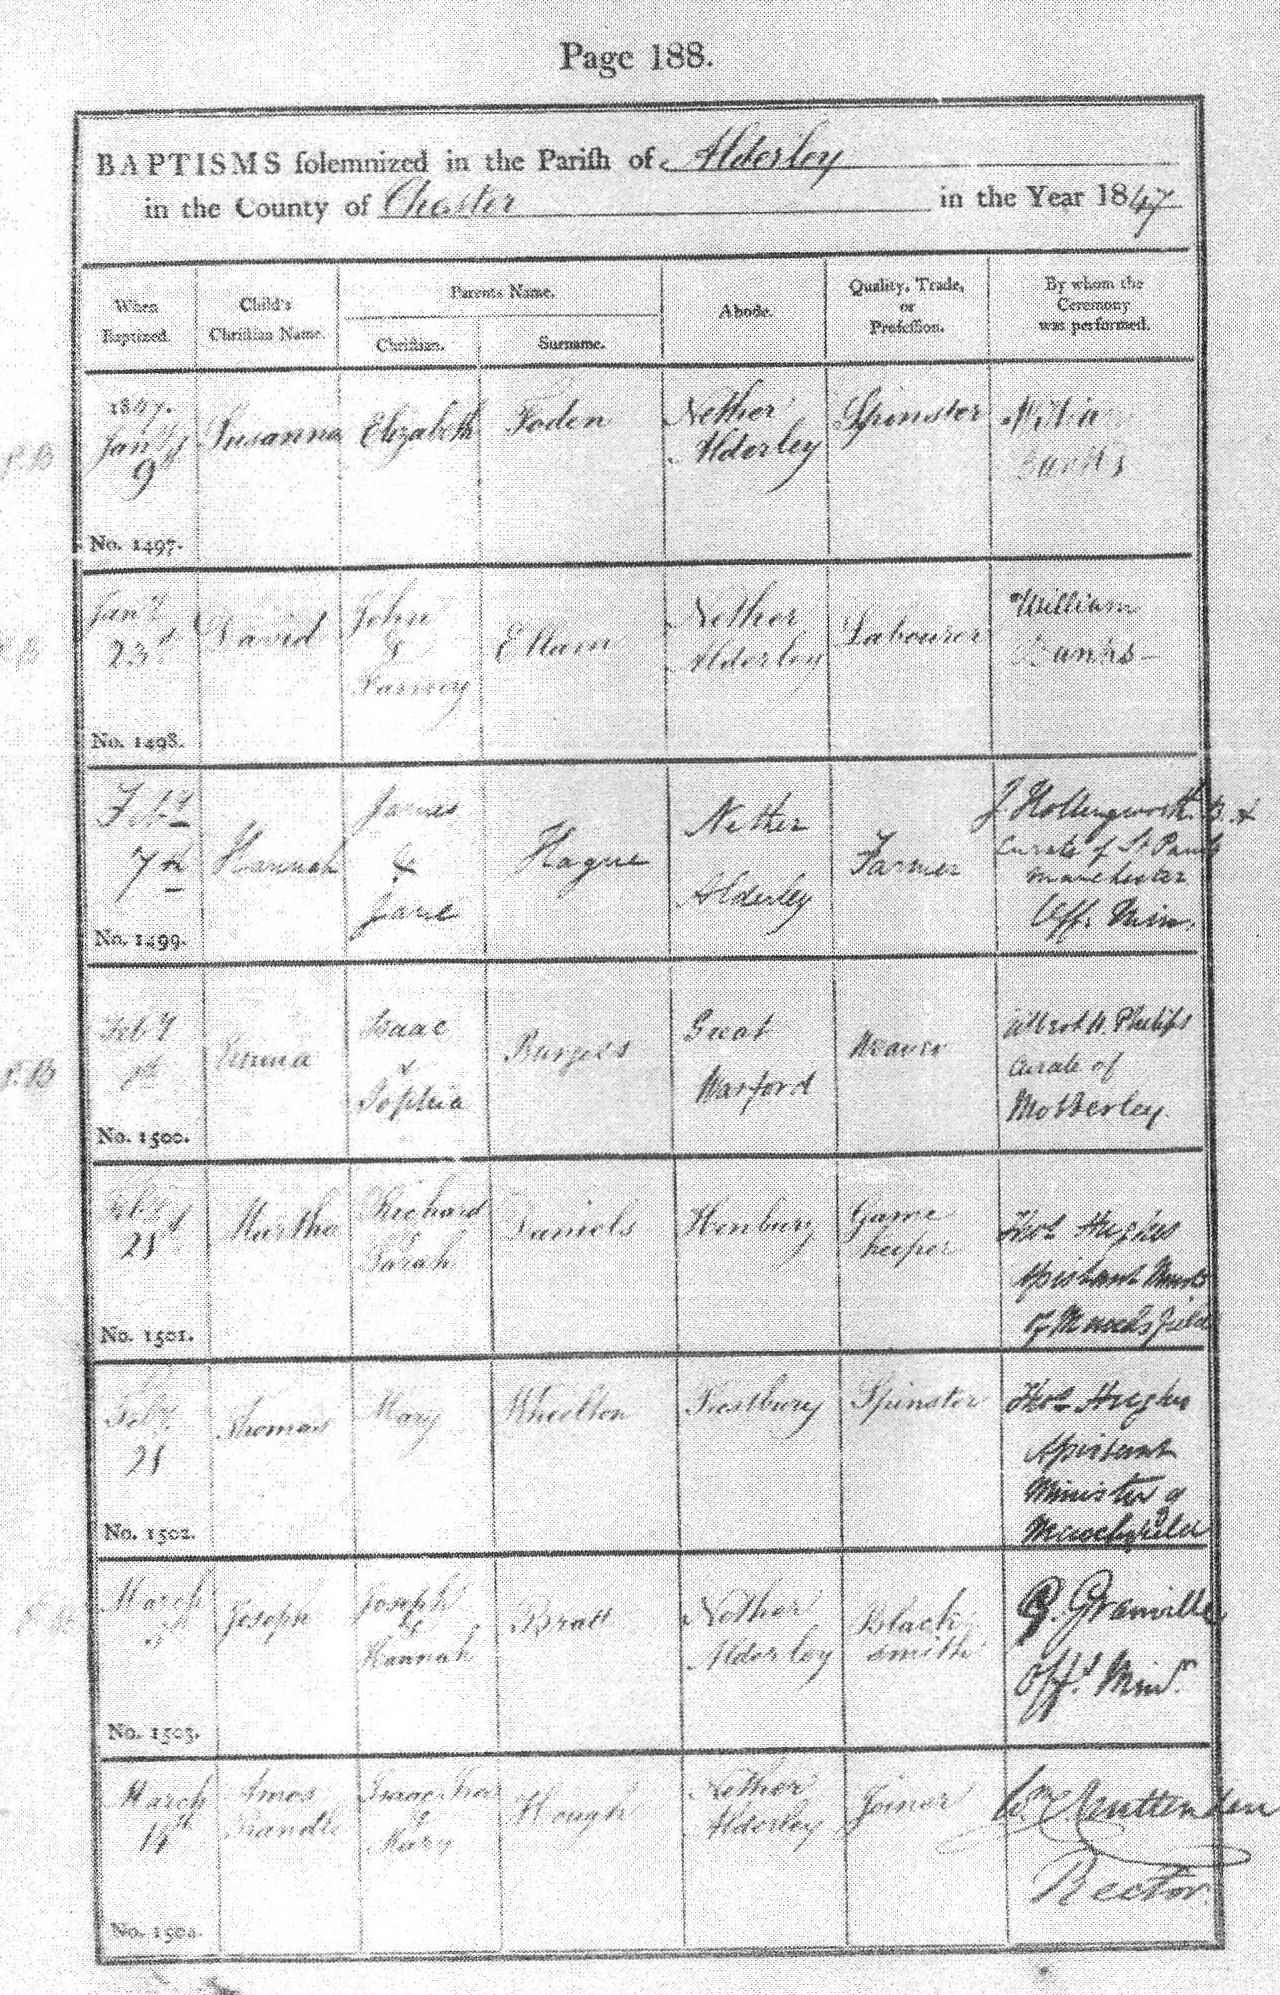 Page 188.
BAPTISMS solemnized in the Parish of Alderley
in the County of Chester in the Year 1847
When Baptized.
Child's Christian Name.
Parents Name.
Christian.
Surname.
Abode.
Quality, Trade, or Profession.
By whom the Ceremony was performed.
1847.
Jany
9
No. 1497.
Susanna
Elizabeth
Foden
Nether
Alderley
Spinster
William
Banks
P.B
Jany
23d
No. 1498.
David
John
&
Fanny
Ellam
Nether
Alderley
Labourer
William
Banks
Feby
7th
No. 1499.
Hannah
James
&
Jane
Hague
Nether
Alderley
Farmer
J. Hollingworth B.A
Curate of St Pauls
Manchester
Off. Min.
P.B
Feby
No. 1500.
Emma
Isaac
&
Sophia
Burgess
Great
Warford
Weaver
Phelips
Curate of
Mobberley
Feby
21
No. 1501.
Martha
Richard
&
Sarah
Daniels
Henbury
Game
keeper
Thos Hughes
Assistant Minst
of Macclesfield
Feby
21
No. 1502.
Thomas
Mary
Wheelton
Prestbury
Spinster
Thos Hughes
Assistant
Minister of
Macclesfield
March
No. 1503.
Joseph
Joseph
&
Hannah
Bratt
Nether
Alderley
Black
smith
G. Granville
Offg. Minr.
March
14th
No. 1504.
Amos
&
Mary
Hough
Nether
Alderley
Joiner
Rector.